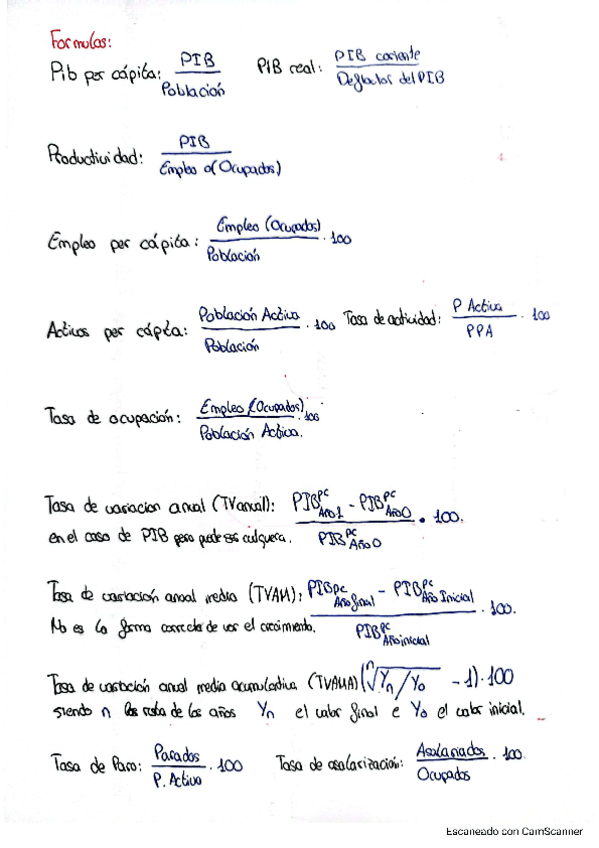 Formulas:
Pib per cápita: PIB / Población    PIB real: PIB corriente / Deflactor del PIB
Productividad: PIB / Empleo o (Ocupados)
Empleo per cápita: Empleo (Ocupados) / Población · 100
Activos per cápita: Población Activa / Población · 100    Tasa de actividad: P Activa / PPA · 100
Tasa de ocupación: Empleo (Ocupados) / Población Activa. · 100
Tasa de variacion anual (TVanual): PIBpc Año1 - PIBpc Año0 / PIBpc Año0 · 100.
en el caso de PIB pero puede ser culquera.
Tasa de variación anual media (TVAM): PIBpc Año final - PIBpc Año Inicial / PIBpc Año inicial · 100.
No es la forma correcta de ver el crecimiento.
Tasa de variación anual media acumulativa (TVAMA) (ⁿ√Yn/Y0 - 1) · 100
siendo n la resta de los años Yn el valor final e Y0 el valor inicial.
Tasa de Paro: Parados / P. Activa · 100    Tasa de asalarización: Asalariados / Ocupados · 100.
Escaneado con CamScanner